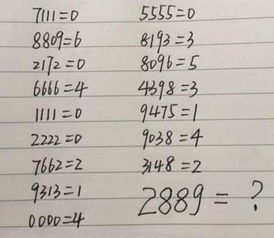 7111=0
8809=6
2172=0
6666=4
1111=0
2222=0
7662=2
9313=1
0000=4
5555=0
8193=3
8096=5
4398=3
9475=1
9038=4
3148=2
2889=?